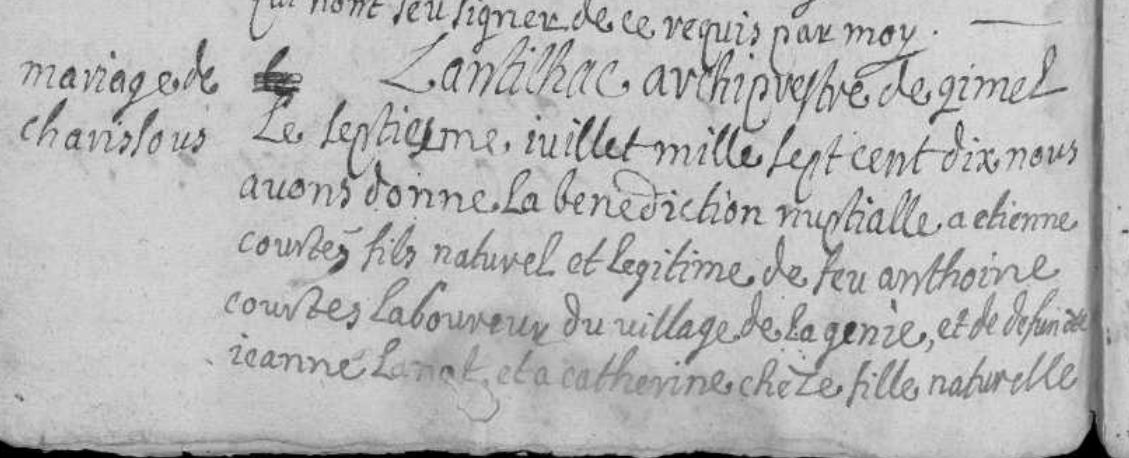 qui nont seu signer de ce requis par moy.
mariage de
chanslous
Lantilhac archiprestre de gimel
Le septiesme iuillet mille sept cent dix nous
auons donne la benediction nuptialle a etienne
courtes fils naturel et legitime de feu anthoine
courtes laboureur du uillage de la genie, et de defuncte
ieanne Lanot, et a catherine chèze fille naturelle